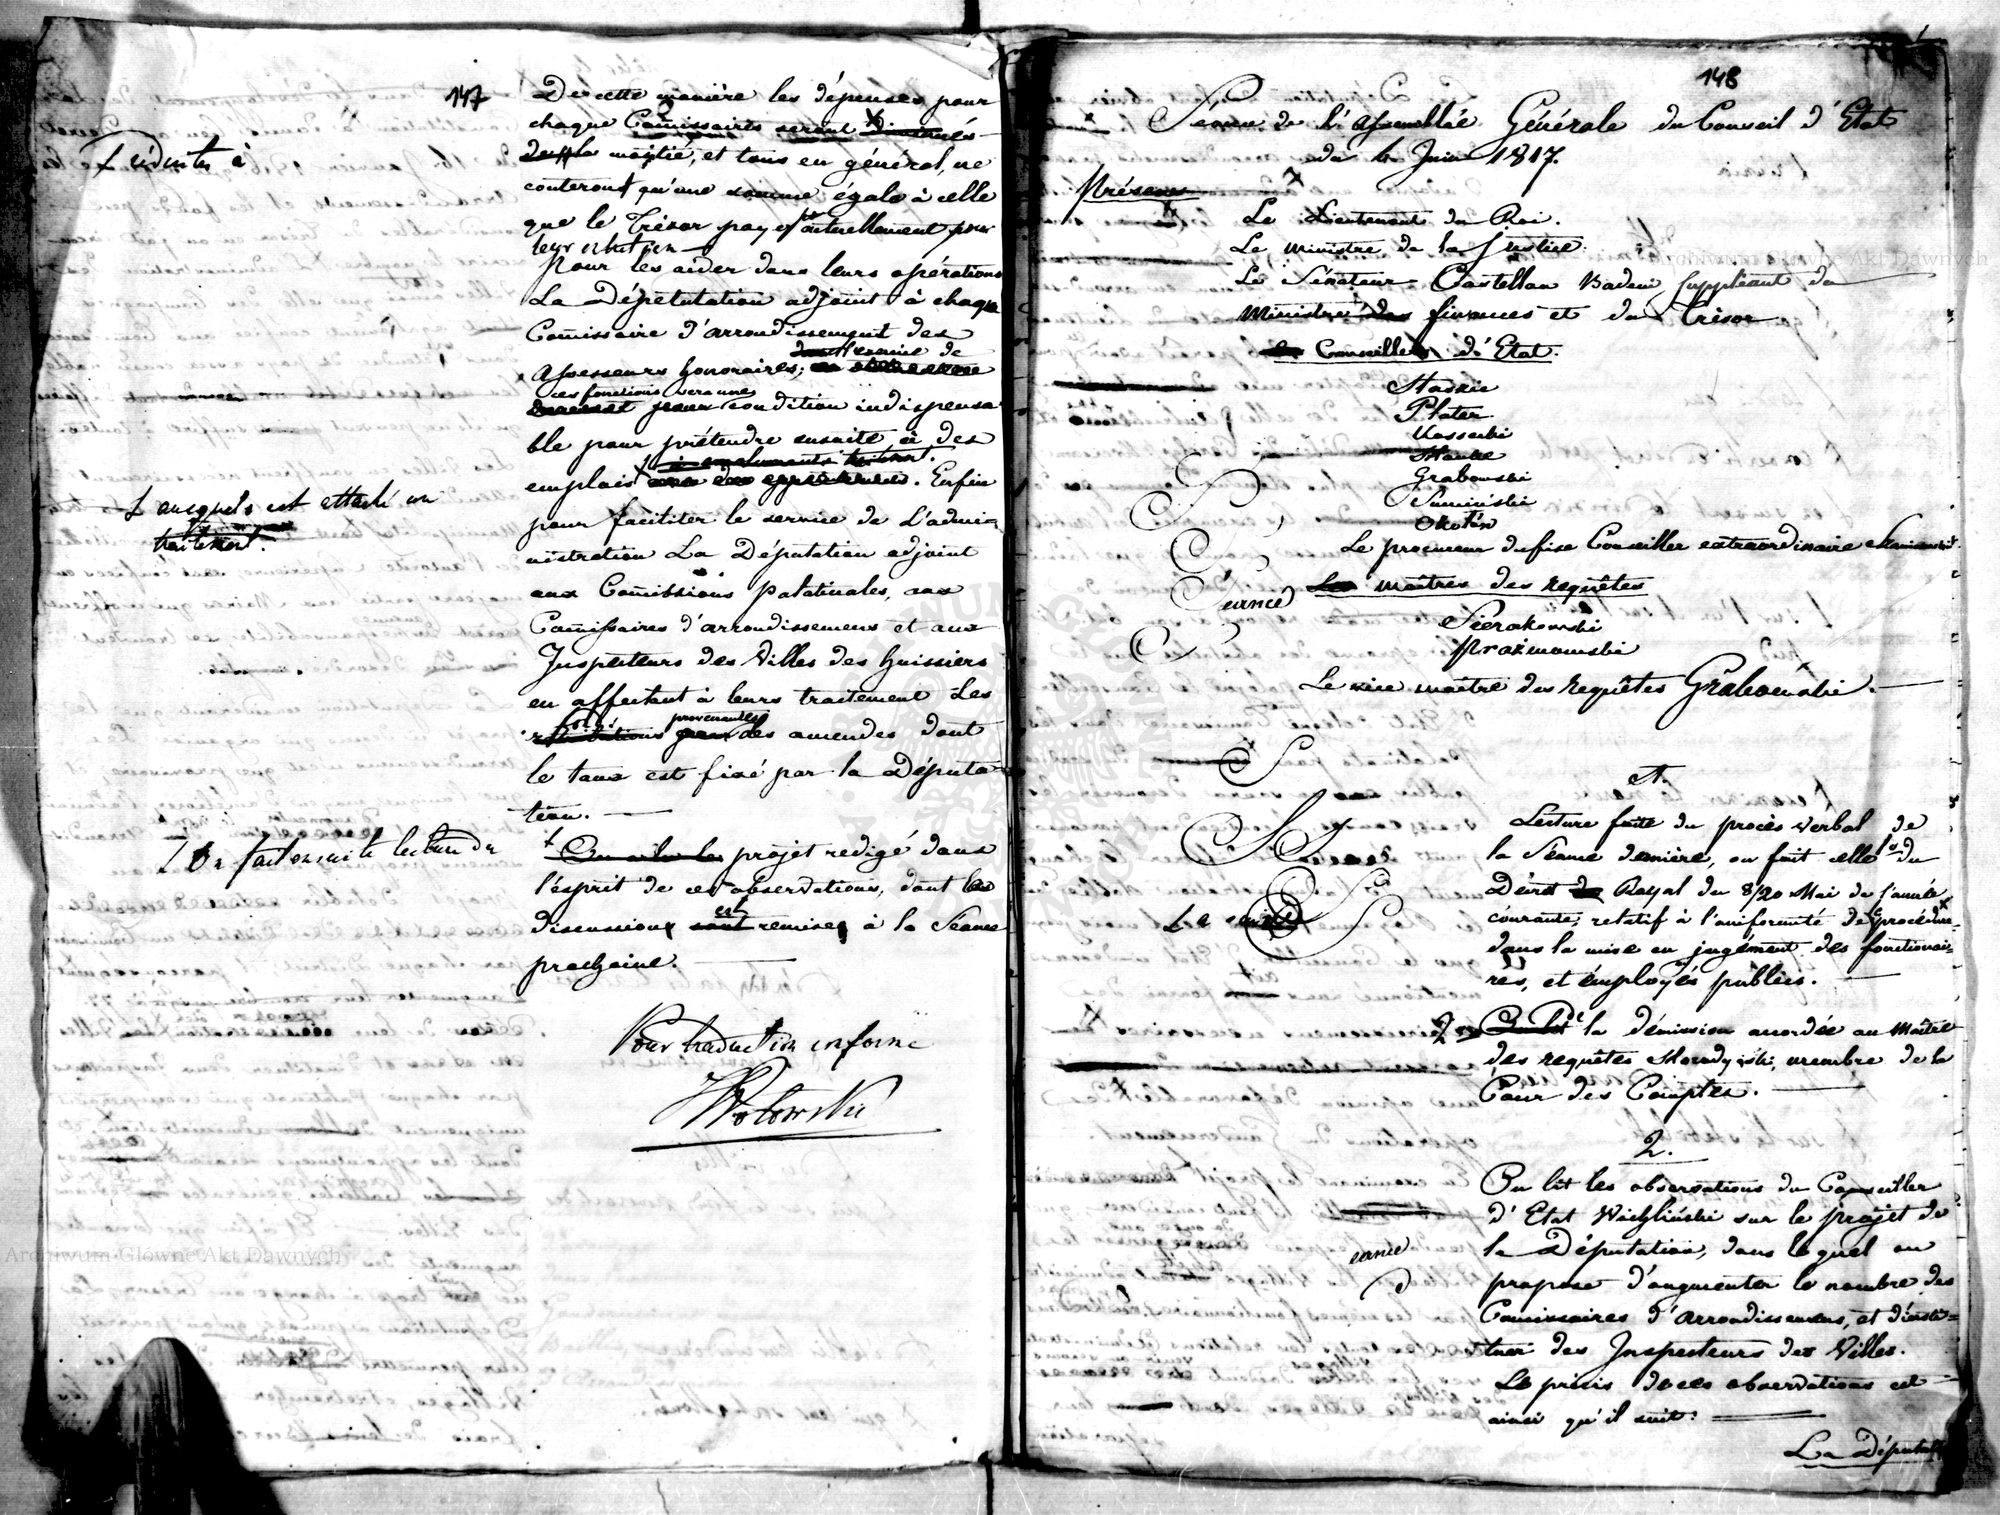 147
De cette manière les dépenses pour
chaque Comissaires seront diminués
de la moitié, et tous en général, ne
⨍ réduits à
couteront qu'une somme égale à celle
que le Trésor paye actuellement pour
leur entretien
Pour les aider dans leurs opérations
La Députation adjoint à chaque
Comissaire d'arrondissement des
Assesseurs honoraires;
ces fonctions sera une
condition indispensa
ble pour prétendre ensuite, à des
emplois
. Enfin
⨍ auxquels est attaché un
traitement.
pour faciliter le service de L'admi=
nistration La Députation adjoint
aux Comissions palatinales, aux
Comissaires d'arrondissemens et aux
Inspecteurs des Villes des huissiers
en affectant à leurs traitement Les
provenantes
des amendes dont
le taux est fixé par la Députa
tion. —
⨍ On fait ensuite lecture du
projet redigé dans
l'esprit de ces observations, dont la
est
discussion sont remise à la Séance
prochaine. —
Pour traduction conforme
Wolowski
148
Séance de l'Assemblée Générale du Conseil d'Etat
du 6 Juin 1817.
Présens
Le Lieutenant du Roi.
Le ministre de la Justice.
Le Sénateur Castellan Badeni suppléant du
Ministre des finances et du Trésor
Les Conseillers d'Etat.
Staszic
Plater
Kossecki
Hauke
Grabowski
Sumiński
Okołów
Le procureur du fisc Conseiller extraordinaire
Les maîtres des requêtes
Séance
Sierakowski
Prażmowski
Le vice maître des requêtes Grabowski. —
1.
Lecture faite du procès verbal de
la Séance dernière, on fait celle 1º du
Décret Royal du 8/20 Mai de l'année
La séance
courante, relatif à l'uniformité de procédure
dans la mise en jugement des fonctionai=
res, et émployés publics. —
2º On lit de la démission accordée au Maître
des requêtes Horodyski, membre de la
Cour des Comptes. —
2.
On lit les observations du Conseiller
d'Etat Węchliński sur le projet de
la Députation, dans lequel on
propose d'augmenter le nombre des
Comissaires d'arrondissemens, et d'insti=
tuer des Inspecteurs des Villes.
Le précis de ces observations est
ainsi qu'il suit:
La Députat
Archiwum Główne Akt Dawnych
Archiwum Główne Akt Dawnych